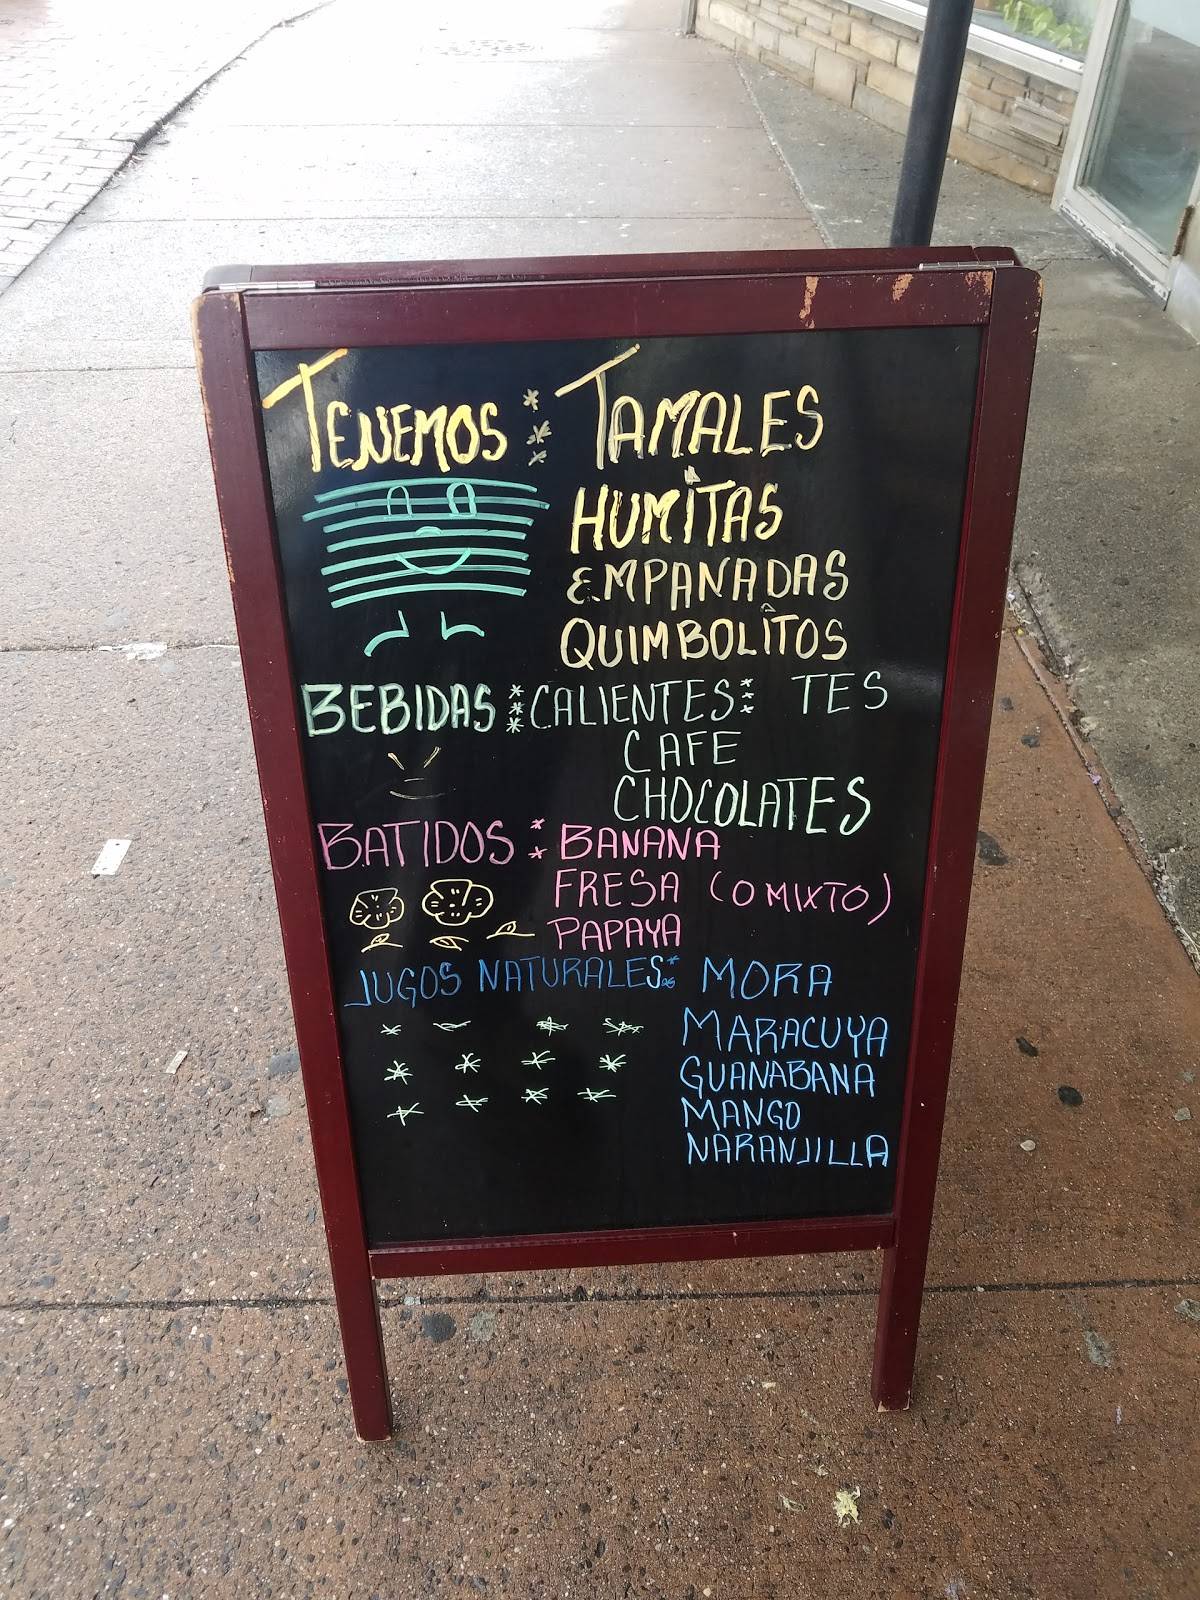 TENEMOS : TAMALES
HUMITAS
EMPANADAS
QUIMBOLITOS
BEBIDAS : CALIENTES : TES
CAFE
CHOCOLATES
BATIDOS : BANANA
FRESA (O MIXTO)
PAPAYA
JUGOS NATURALES : MORA
MARACUYA
GUANABANA
MANGO
NARANJILLA